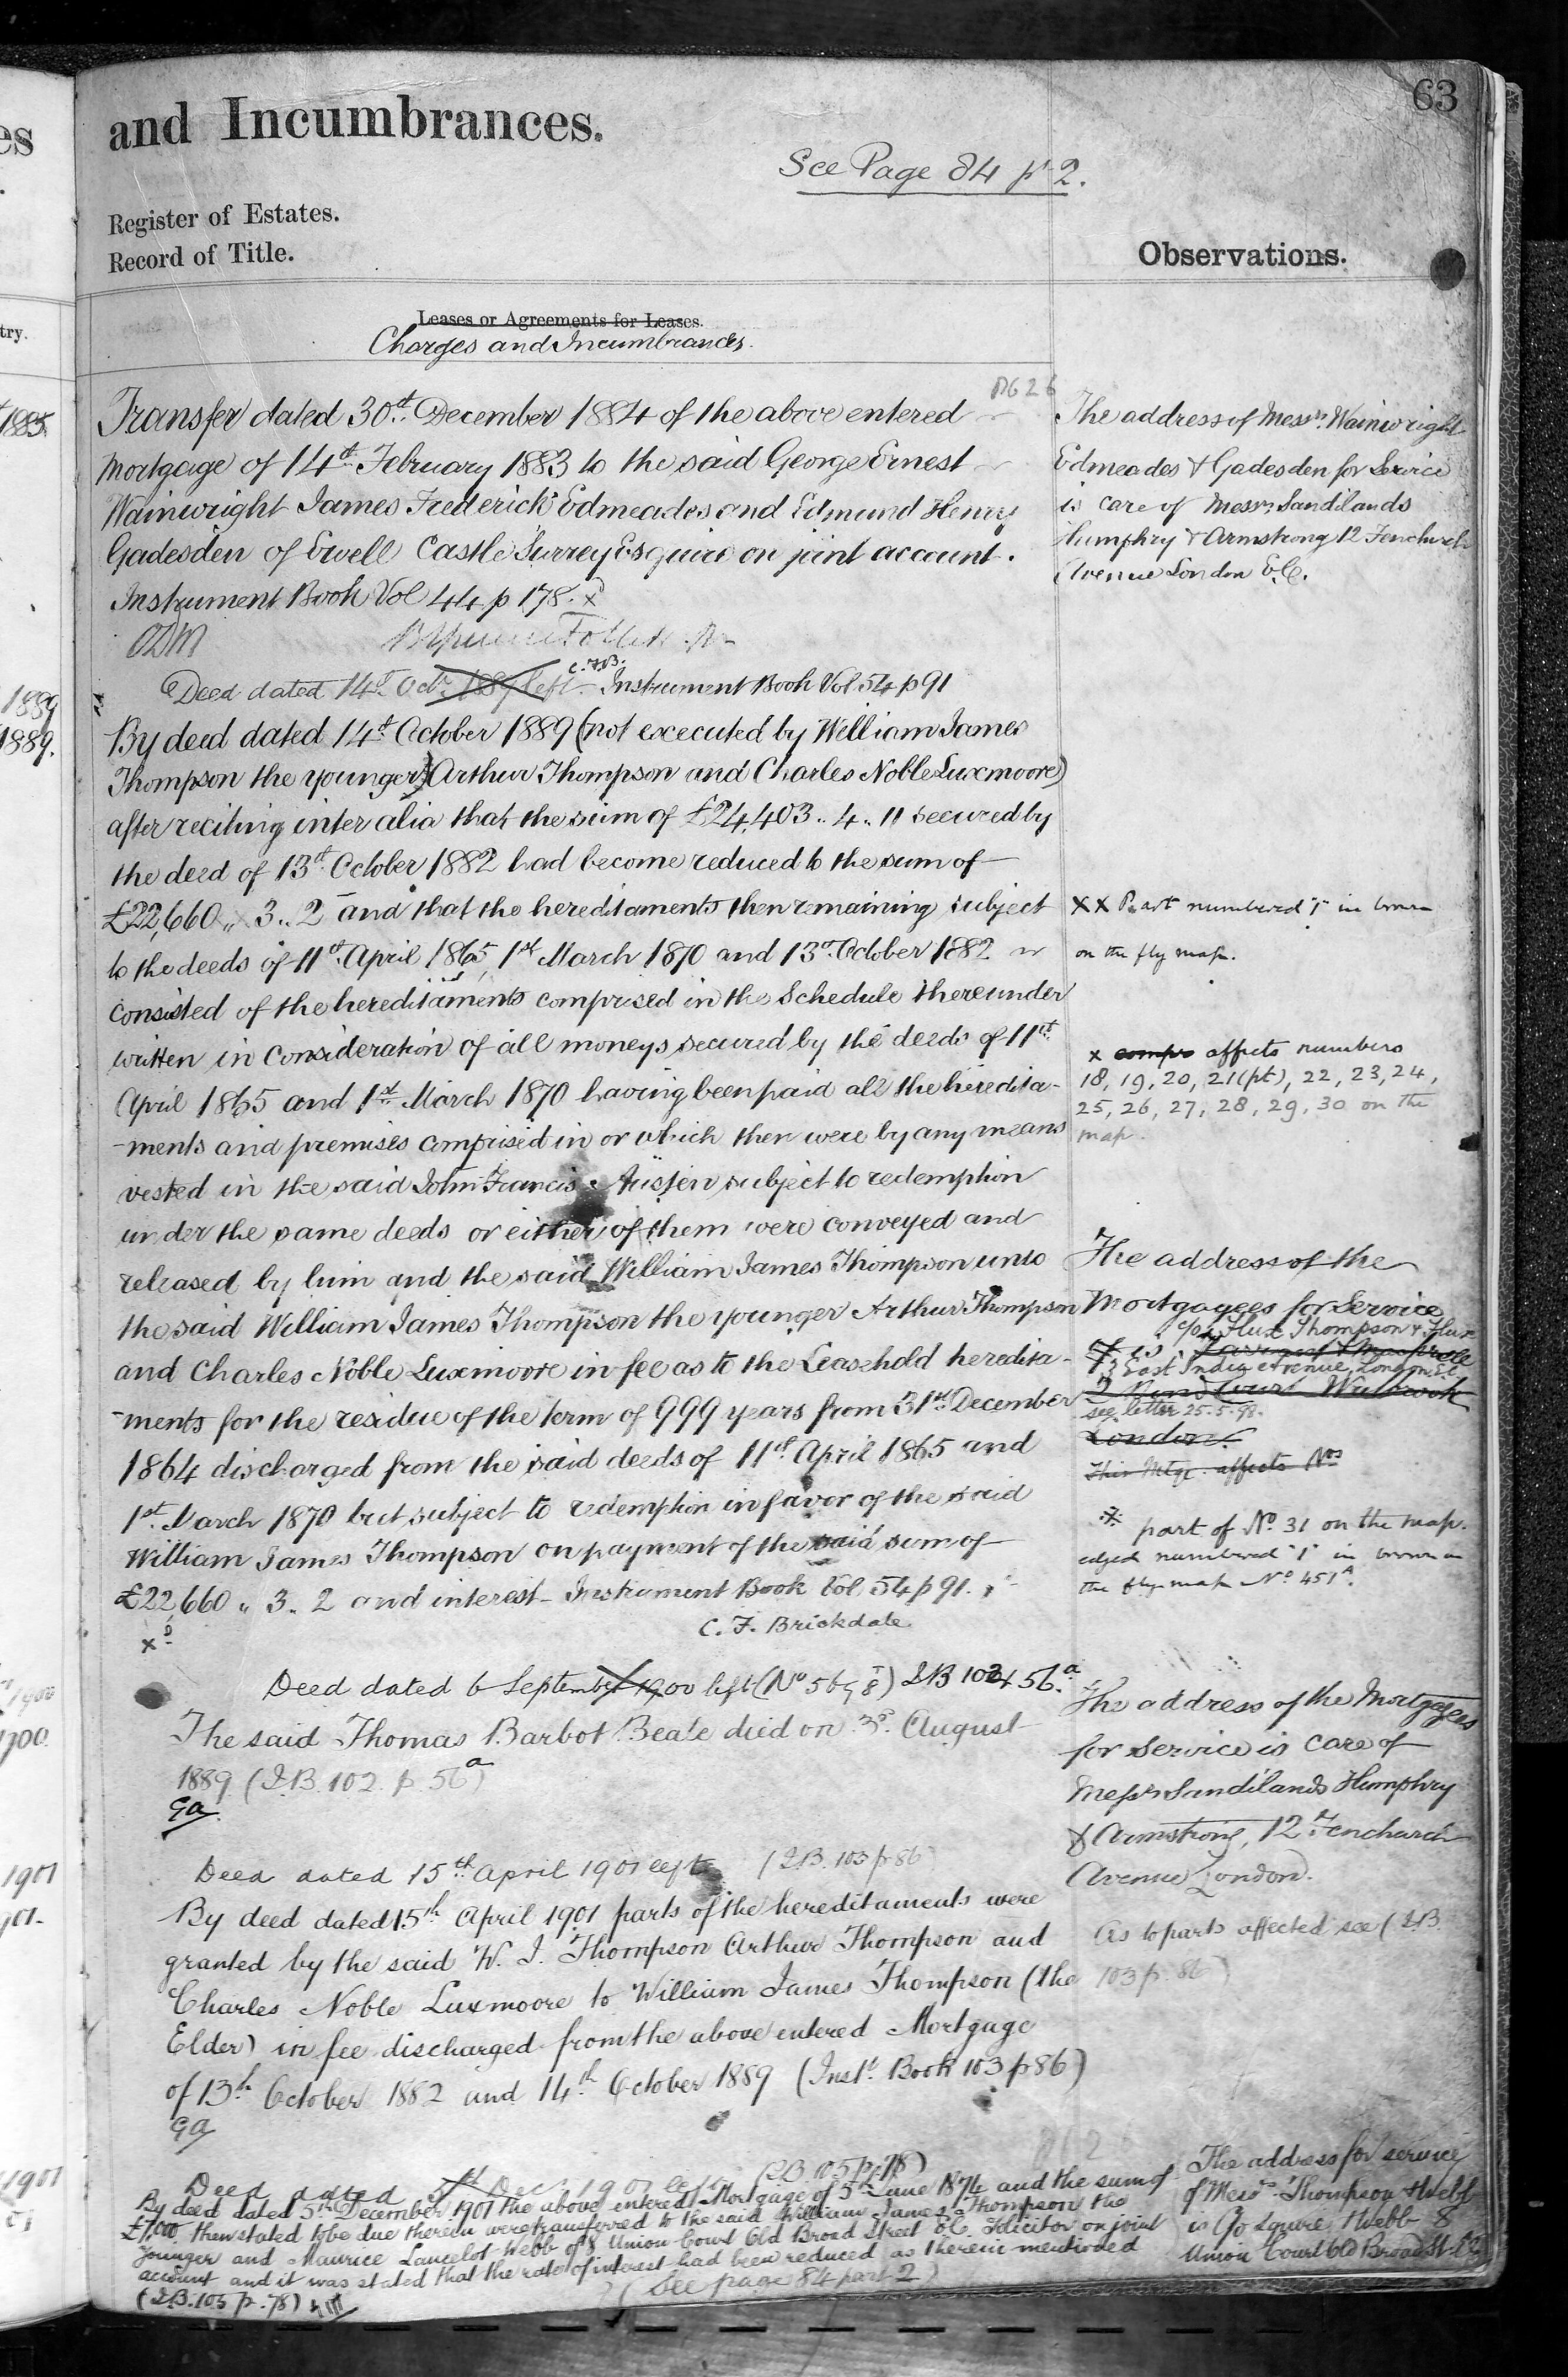 63
and Incumbrances.
See Page 84 pt 2.
Register of Estates.
Record of Title.
Observations.
Leases or Agreements for Leases.
Charges and Incumbrances.
Transfer dated 30th December 1884 of the above entered
Mortgage of 14th February 1883 to the said George Ernest
Wainwright James Frederick Edmeades and Edmund Henry
Gadesden of Ewell Castle Surrey Esquire on joint account.
Instrument Book Vol 44 p 178. x
Deed dated 14th Octr 1889 left C.F.B. Instrument Book Vol 54 p 91
By deed dated 14th October 1889 (not excecuted by William James
Thompson the younger) Arthur Thompson and Charles Noble Luxmoore)
after reciting inter alia that the sum of £24,403 .. 4 .. 11 secured by
the deed of 13th October 1882 had become reduced to the sum of
£22,660 .. 3 .. 2 and that the hereditaments then remaining subject
to the deeds of 11th April 1865, 1st March 1870 and 13th October 1882
consisted of the hereditaments comprised in the Schedule thereunder
written in consideration of all moneys secured by the deeds of 11th
April 1865 and 1st March 1870 having been paid all the heredita-
-ments and premises comprised in or which then were by any means
vested in the said John Francis Austen subject to redemption
under the same deeds or either of them were conveyed and
released by him and the said William James Thompson unto
the said William James Thompson the younger Arthur Thompson
and Charles Noble Luxmoore in fee as to the Leasehold heredita-
-ments for the residue of the term of 999 years from 31st December
1864 discharged from the said deeds of 11th April 1865 and
1st March 1870 but subject to redemption in favor of the said
William James Thompson on payment of the said sum of
£22,660 .. 3 .. 2 and interest - Instrument Book Vol 54 p 91.
C. F. Brickdale
Deed dated 6 September 1900 left (No 567/8) I.B 102 p 56a
The said Thomas Barbot Beale died on 3rd August
1889 (I.B. 102. p. 56a)
GA
Deed dated 15th April 1901 left (I.B. 103 p 86)
By deed dated 15th April 1901 parts of the hereditaments were
granted by the said W. J. Thompson Arthur Thompson and
Charles Noble Luxmoore to William James Thompson (the
Elder) in fee discharged from the above entered Mortgage
of 13th October 1882 and 14th October 1889 (Inst. Book 103 p 86)
GA
Deed dated 5th Dec 1901 left (I.B. 105 p. 78)
By deed dated 5th December 1901 the above entered Mortgage of 5th June 1874 and the sum of
£7,000 then stated to be due therein were transferred to the said William James Thompson the
younger and Maurice Lancelot Webb of 8 Union Court Old Broad Street E.C. Solicitor on joint
account and it was stated that the rate of interest had been reduced as therein mentioned
(I.B. 105 p. 78)
(See page 84 part 2)
The address of Messrs. Wainwright
Edmeades & Gadesden for Service
is care of Messrs. Sandilands
Humphry & Armstrong 12 Fenchurch
Avenue London E.C.
x x Part numbered "1" in brown
on the fly map.
x affects numbers
18, 19, 20, 21 (pt), 22, 23, 24,
25, 26, 27, 28, 29, 30 on the
map.
The address of the
Mortgagees for Service
is c/o Flux Thompson & Flux
3 East India Avenue, London E.C.
see letter 25.5.98.
London.
This Mtge. affects Nos
part of No. 31 on the map.
edged numbered "1" in brown on
the fly map No 451A.
The address of the Mortgagees
for Service is care of
Messrs Sandilands Humphry
& Armstrong, 12 Fenchurch
Avenue London.
As to parts affected see (I.B.
103 p. 86)
The address for service
of Messrs. Thompson & Webb
is c/o Squire & Webb 8
Union Court Old Broad St. E.C.